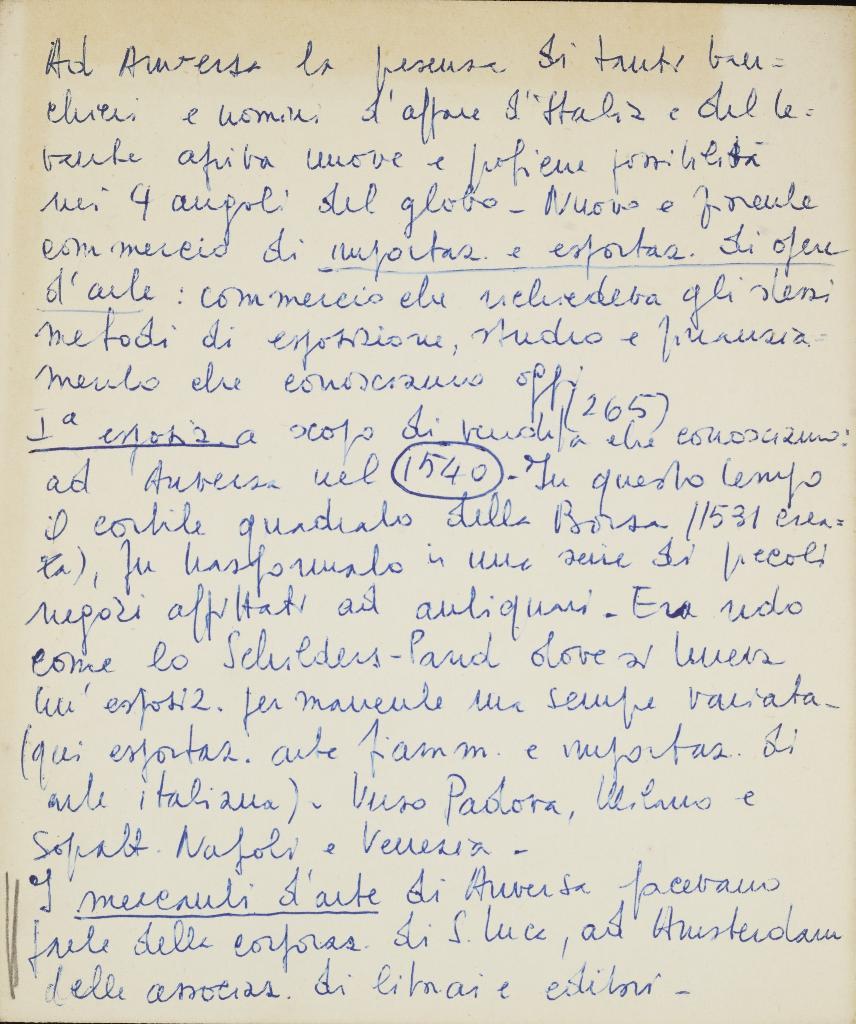 Ad Anversa la presenza di tanti ban-
chieri e uomini d'affare d'Italia e del le-
vante apriva nuove e proficue possibilità
nei 4 angoli del globo - Nuovo e fiorente
commercio di importaz. e esportaz. di opere
d'arte : commercio che richiedeva gli stessi
metodi di esposizione, studio e finanzia-
mento che conosciamo oggi
(265)
Iª esposiz. a scopo di vendita che conosciamo:
ad Anversa nel 1540 - In questo tempo
il cortile quadrato della Borsa (1531 crea-
ta), fu trasformato in una serie di piccoli
negozi affittati ad antiquari - Era noto
come lo Schilders-Pand dove si teneva
un'esposiz. permanente ma sempre variata -
(qui esportaz. arte fiamm. e importaz. di
arte italiana) - Verso Padova, Milano e
Sopratt. Napoli e Venezia -
I mercanti d'arte di Anversa facevano
parte della corporaz. di S. Luca, ad Amsterdam
delle associaz. di librai e editori -